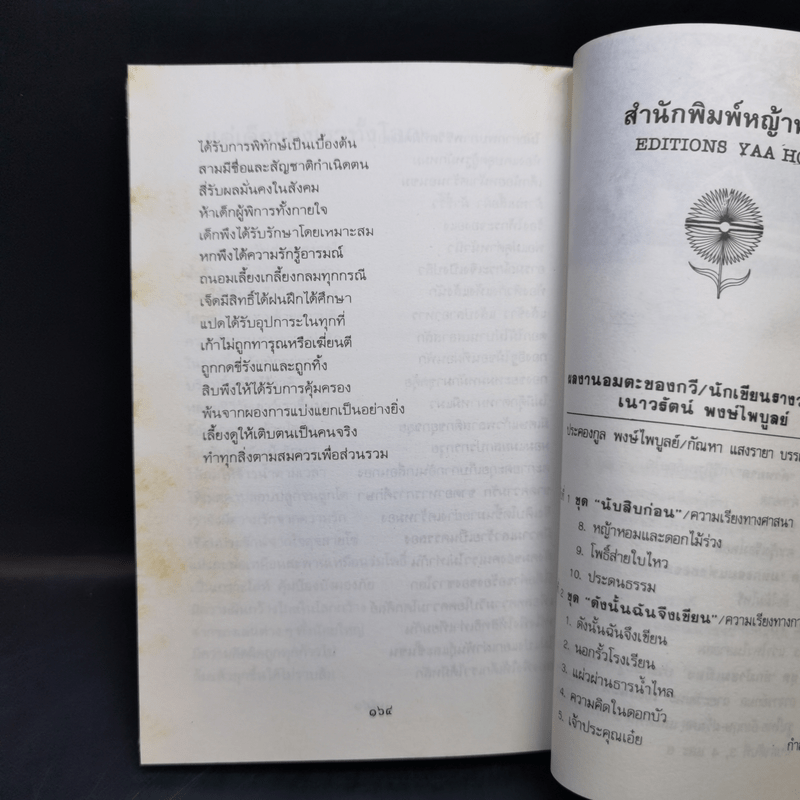 ได้รับการพิทักษ์เป็นเบื้องต้น
สามมีชื่อและสัญชาติกำเนิดตน
สี่รับผลมั่นคงในสังคม
ห้าเด็กผู้พิการทั้งกายใจ
เด็กพึงได้รับรักษาโดยเหมาะสม
หกพึงได้ความรักรู้อารมณ์
ถนอมเลี้ยงเกลี้ยงกลมทุกกรณี
เจ็ดมีสิทธิ์ได้ฝนฝึกได้ศึกษา
แปดได้รับอุปการะในทุกที่
เก้าไม่ถูกทารุณหรือเฆี่ยนตี
ถูกกดขี่รังแกและถูกทิ้ง
สิบพึงให้ได้รับการคุ้มครอง
พ้นจากผองการแบ่งแยกเป็นอย่างยิ่ง
เลี้ยงดูให้เติบตนเป็นคนจริง
ทำทุกสิ่งตามสมควรเพื่อส่วนรวม
๑๖๔
สำนักพิมพ์หญ้า
EDITIONS YAA HO
ผลงานอมตะของกวี/นักเขียนราง
เนาวรัตน์ พงษ์ไพบูลย์
ประคองกูล พงษ์ไพบูลย์/กัณหา แสงรายา
1 ชุด "นับสิบก่อน"/ความเรียงทางศาสนา
8. หญ้าหอมและดอกไม้ร่วง
9. โพธิ์ส่ายใบไหว
10. ประดนธรรม
2 ชุด "ดังนั้นฉันจึงเขียน"/ความเรียงทาง
1. ดังนั้นฉันจึงเขียน
2. นอกรั้วโรงเรียน
3. แผ่วผ่านธารน้ำไหล
4. ความคิดในดอกบัว
5. เจ้าประคุณเอ๋ย